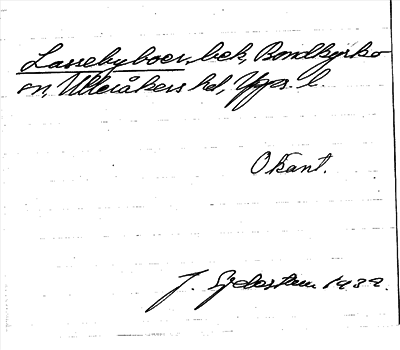 Lassebyboer, bek, Bondkyrko
sn, Ulleråkers hd, Upps. l.
Okänt.
J. Sjöbastam 1932.